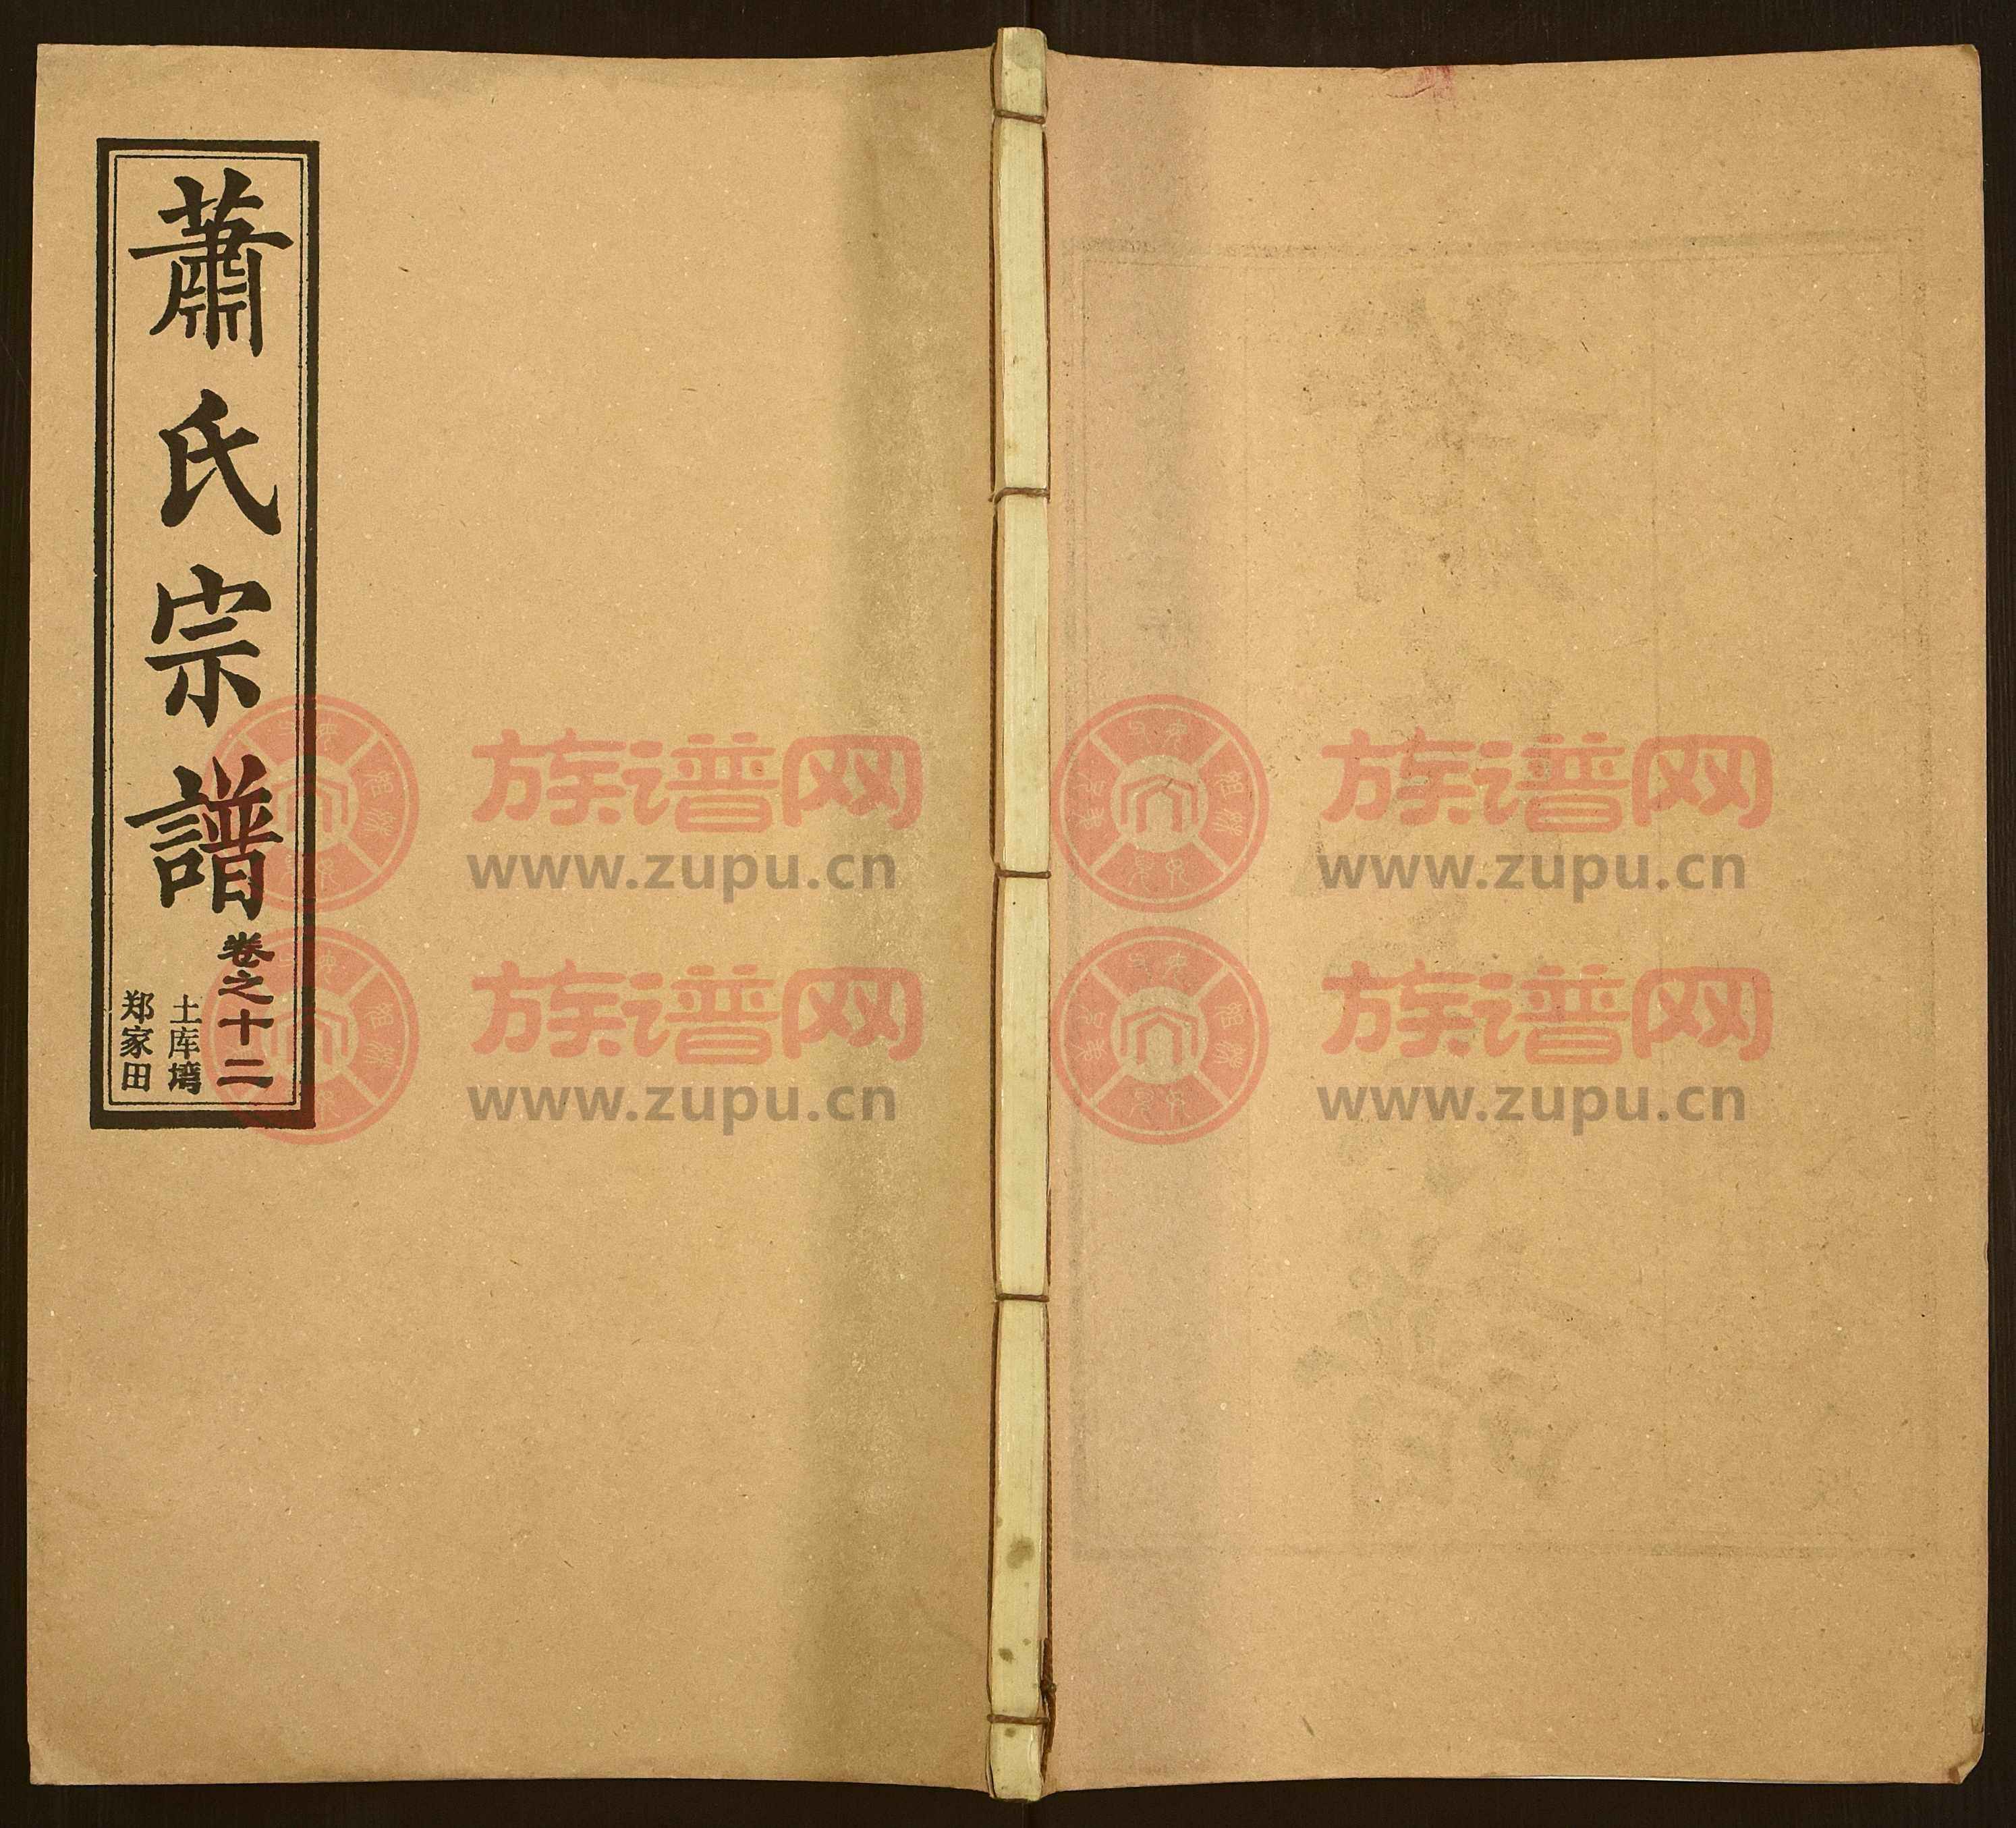 蕭氏宗譜
卷之十二
土库塆
郑家田
族谱网
www.zupu.cn
族谱网
www.zupu.cn
族谱网
www.zupu.cn
族谱网
www.zupu.cn